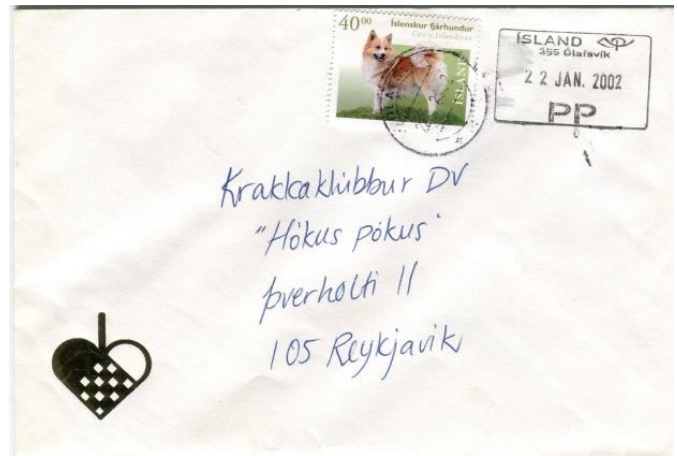 40⁰⁰ Íslenskur fjárhundur
Canis Islandicus
ÍSLAND
ÍSLAND
355 Ólafsvík
22 JAN. 2002
PP
Krakkaklúbbur DV
"Hókus pókus"
Þverholti 11
105 Reykjavík